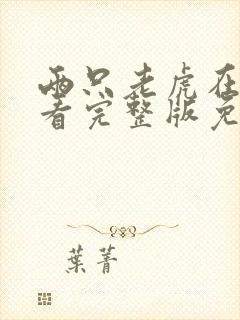 两只老虎在
看完整版免
葉菁